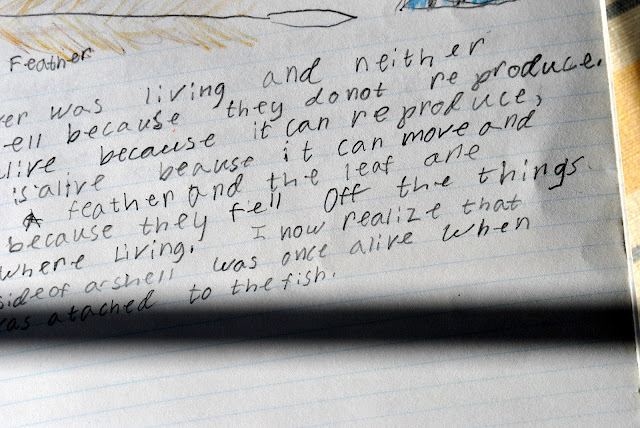 Feather
er was living and neither
ell because they donot reproduce.
live because it can reproduce,
is alive beause it can move and
A feather and the leaf are
because they fell Off the things
where living. I now realize that
side of a shell was once alive when
as atached to the fish.